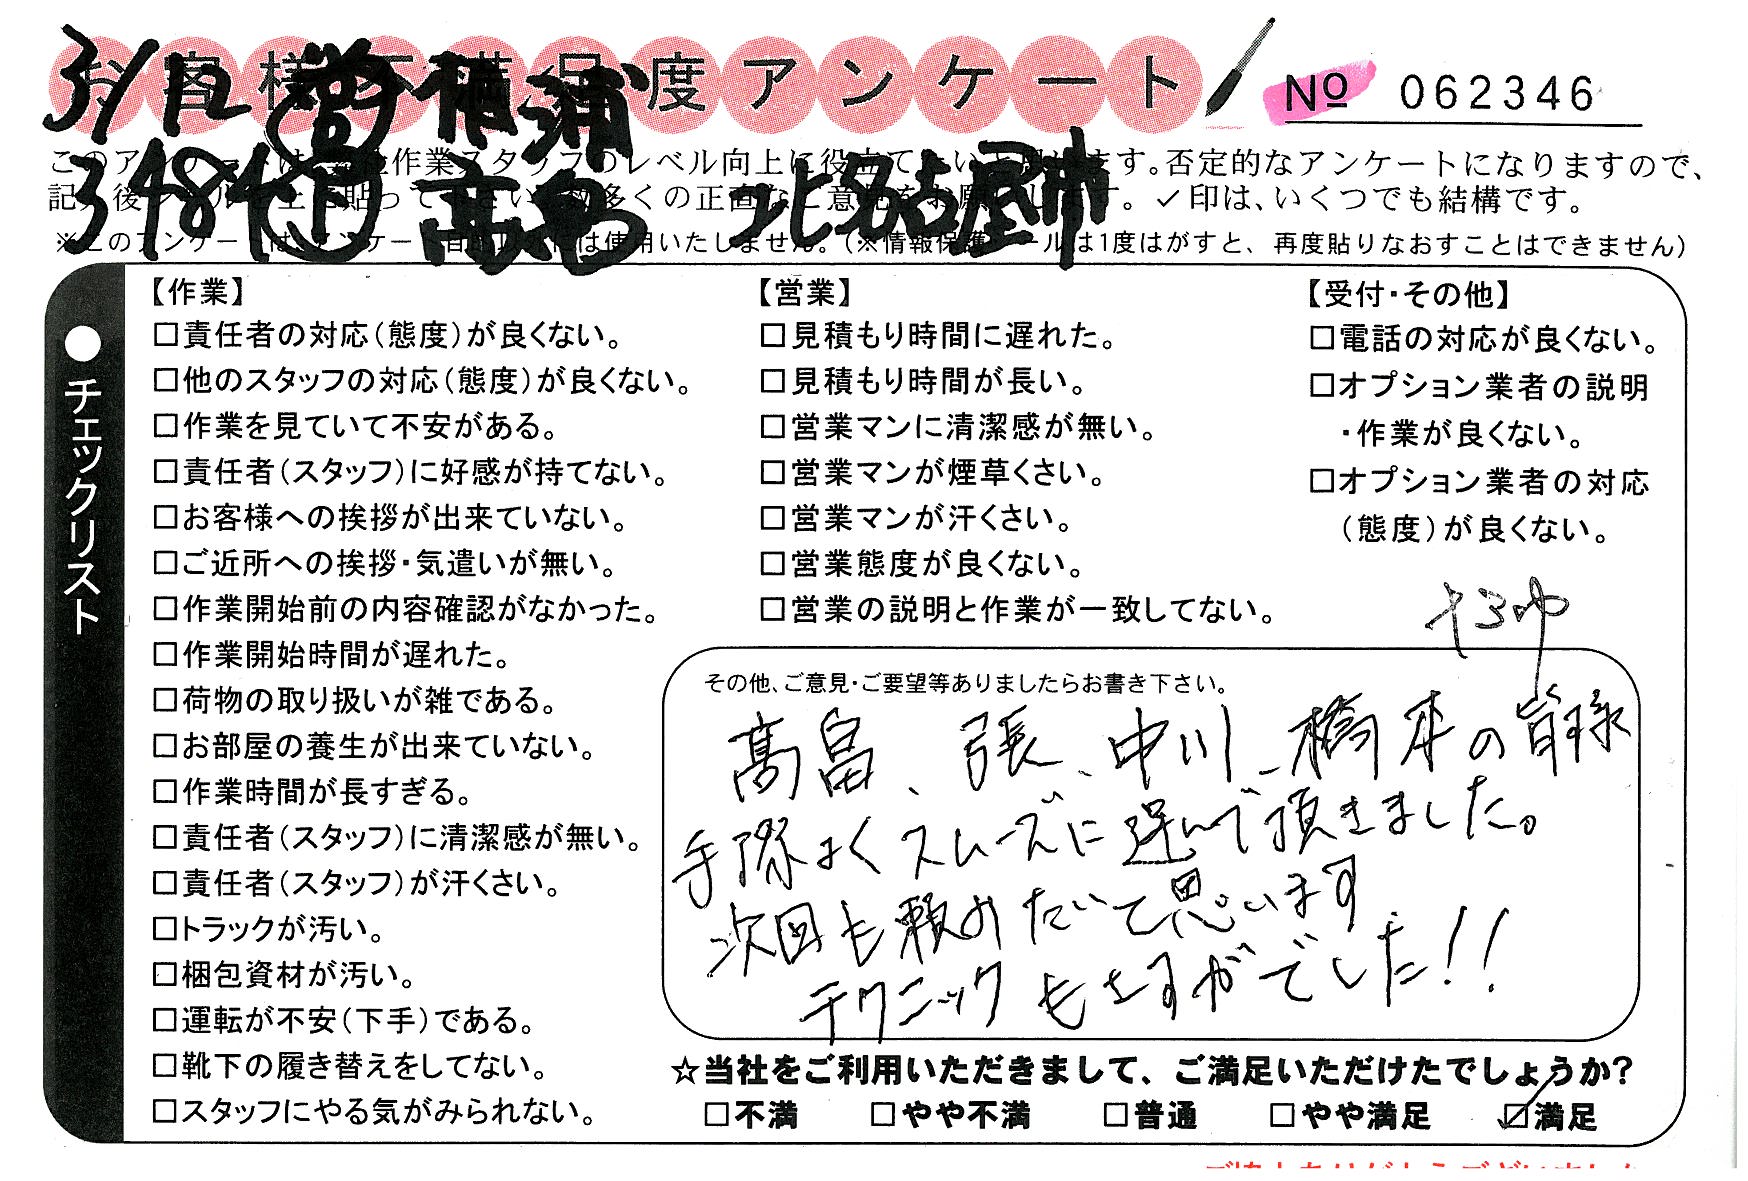 お客様不満足度アンケート
No 062346
3/12 営 楠浦
3484 作 高畠 北名古屋市
このアンケートは、弊社作業スタッフのレベル向上に役立てたいと思います。否定的なアンケートになりますので、
記入後シールを上に貼って下さい。数多くの正直なご意見をお願いします。✓印は、いくつでも結構です。
※このアンケートは、アンケート目的以外には使用いたしません。(※情報保護シールは1度はがすと、再度貼りなおすことはできません)
●チェックリスト
【作業】
□責任者の対応(態度)が良くない。
□他のスタッフの対応(態度)が良くない。
□作業を見ていて不安がある。
□責任者(スタッフ)に好感が持てない。
□お客様への挨拶が出来ていない。
□ご近所への挨拶・気遣いが無い。
□作業開始前の内容確認がなかった。
□作業開始時間が遅れた。
□荷物の取り扱いが雑である。
□お部屋の養生が出来ていない。
□作業時間が長すぎる。
□責任者(スタッフ)に清潔感が無い。
□責任者(スタッフ)が汗くさい。
□トラックが汚い。
□梱包資材が汚い。
□運転が不安(下手)である。
□靴下の履き替えをしてない。
□スタッフにやる気がみられない。
【営業】
□見積もり時間に遅れた。
□見積もり時間が長い。
□営業マンに清潔感が無い。
□営業マンが煙草くさい。
□営業マンが汗くさい。
□営業態度が良くない。
□営業の説明と作業が一致してない。
【受付・その他】
□電話の対応が良くない。
□オプション業者の説明
・作業が良くない。
□オプション業者の対応
(態度)が良くない。
その他、ご意見・ご要望等ありましたらお書き下さい。
高畠、張、中川、橋本の皆様
手際よくスムーズに運んで頂きました。
次回も頼みたいと思います
テクニックもさすがでした!!
☆当社をご利用いただきまして、ご満足いただけたでしょうか?
□不満 □やや不満 □普通 □やや満足 ☑満足
ご協力ありがとうございました